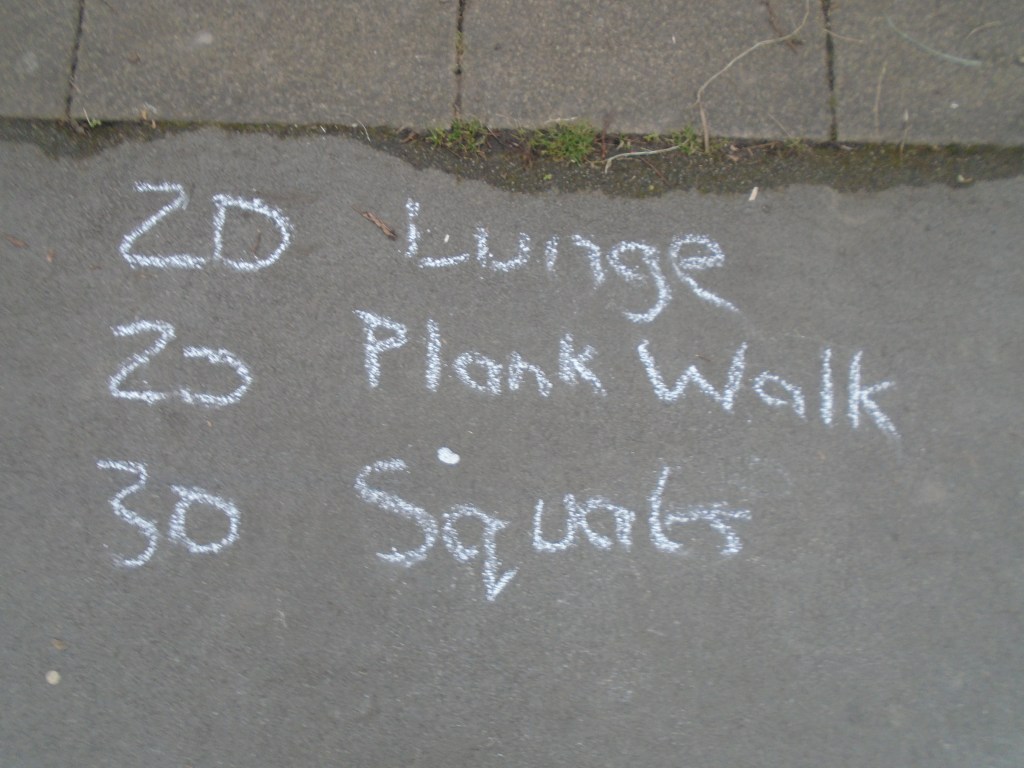 20 Lunge
20 Plank Walk
30 Squats